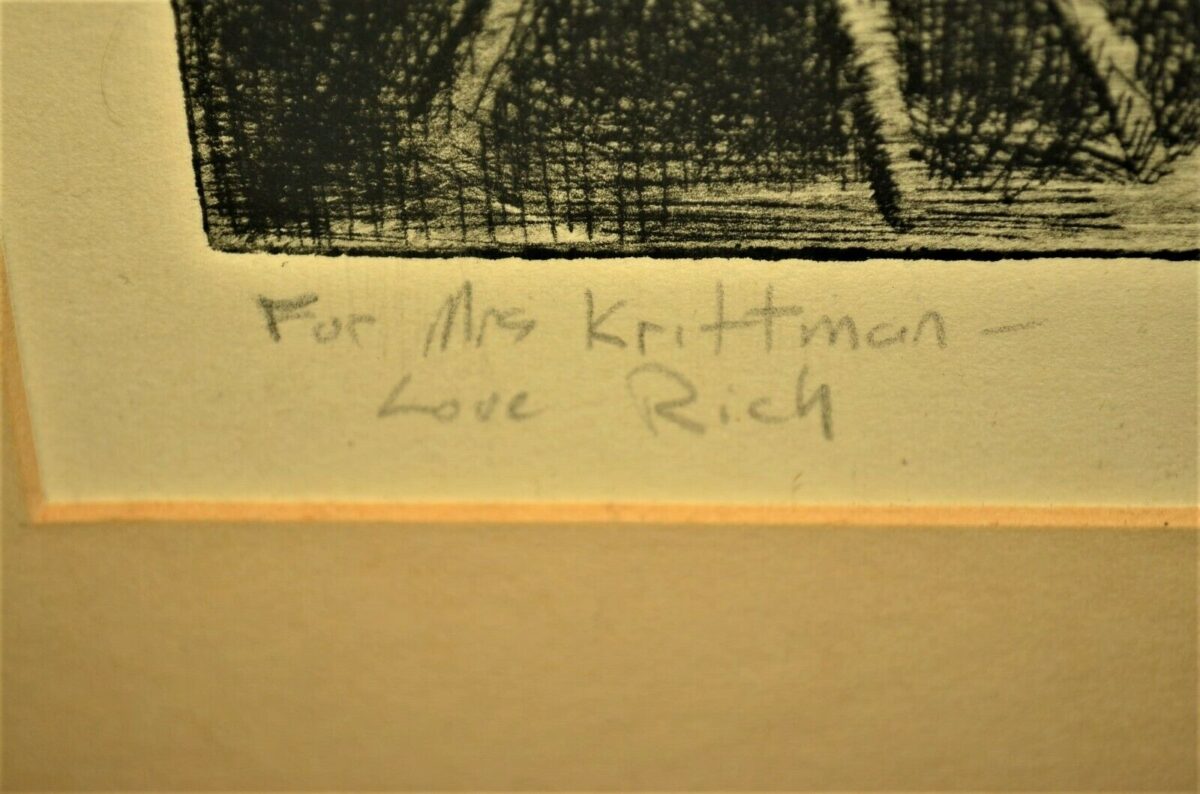 For Mrs Krittman –
Love Rich